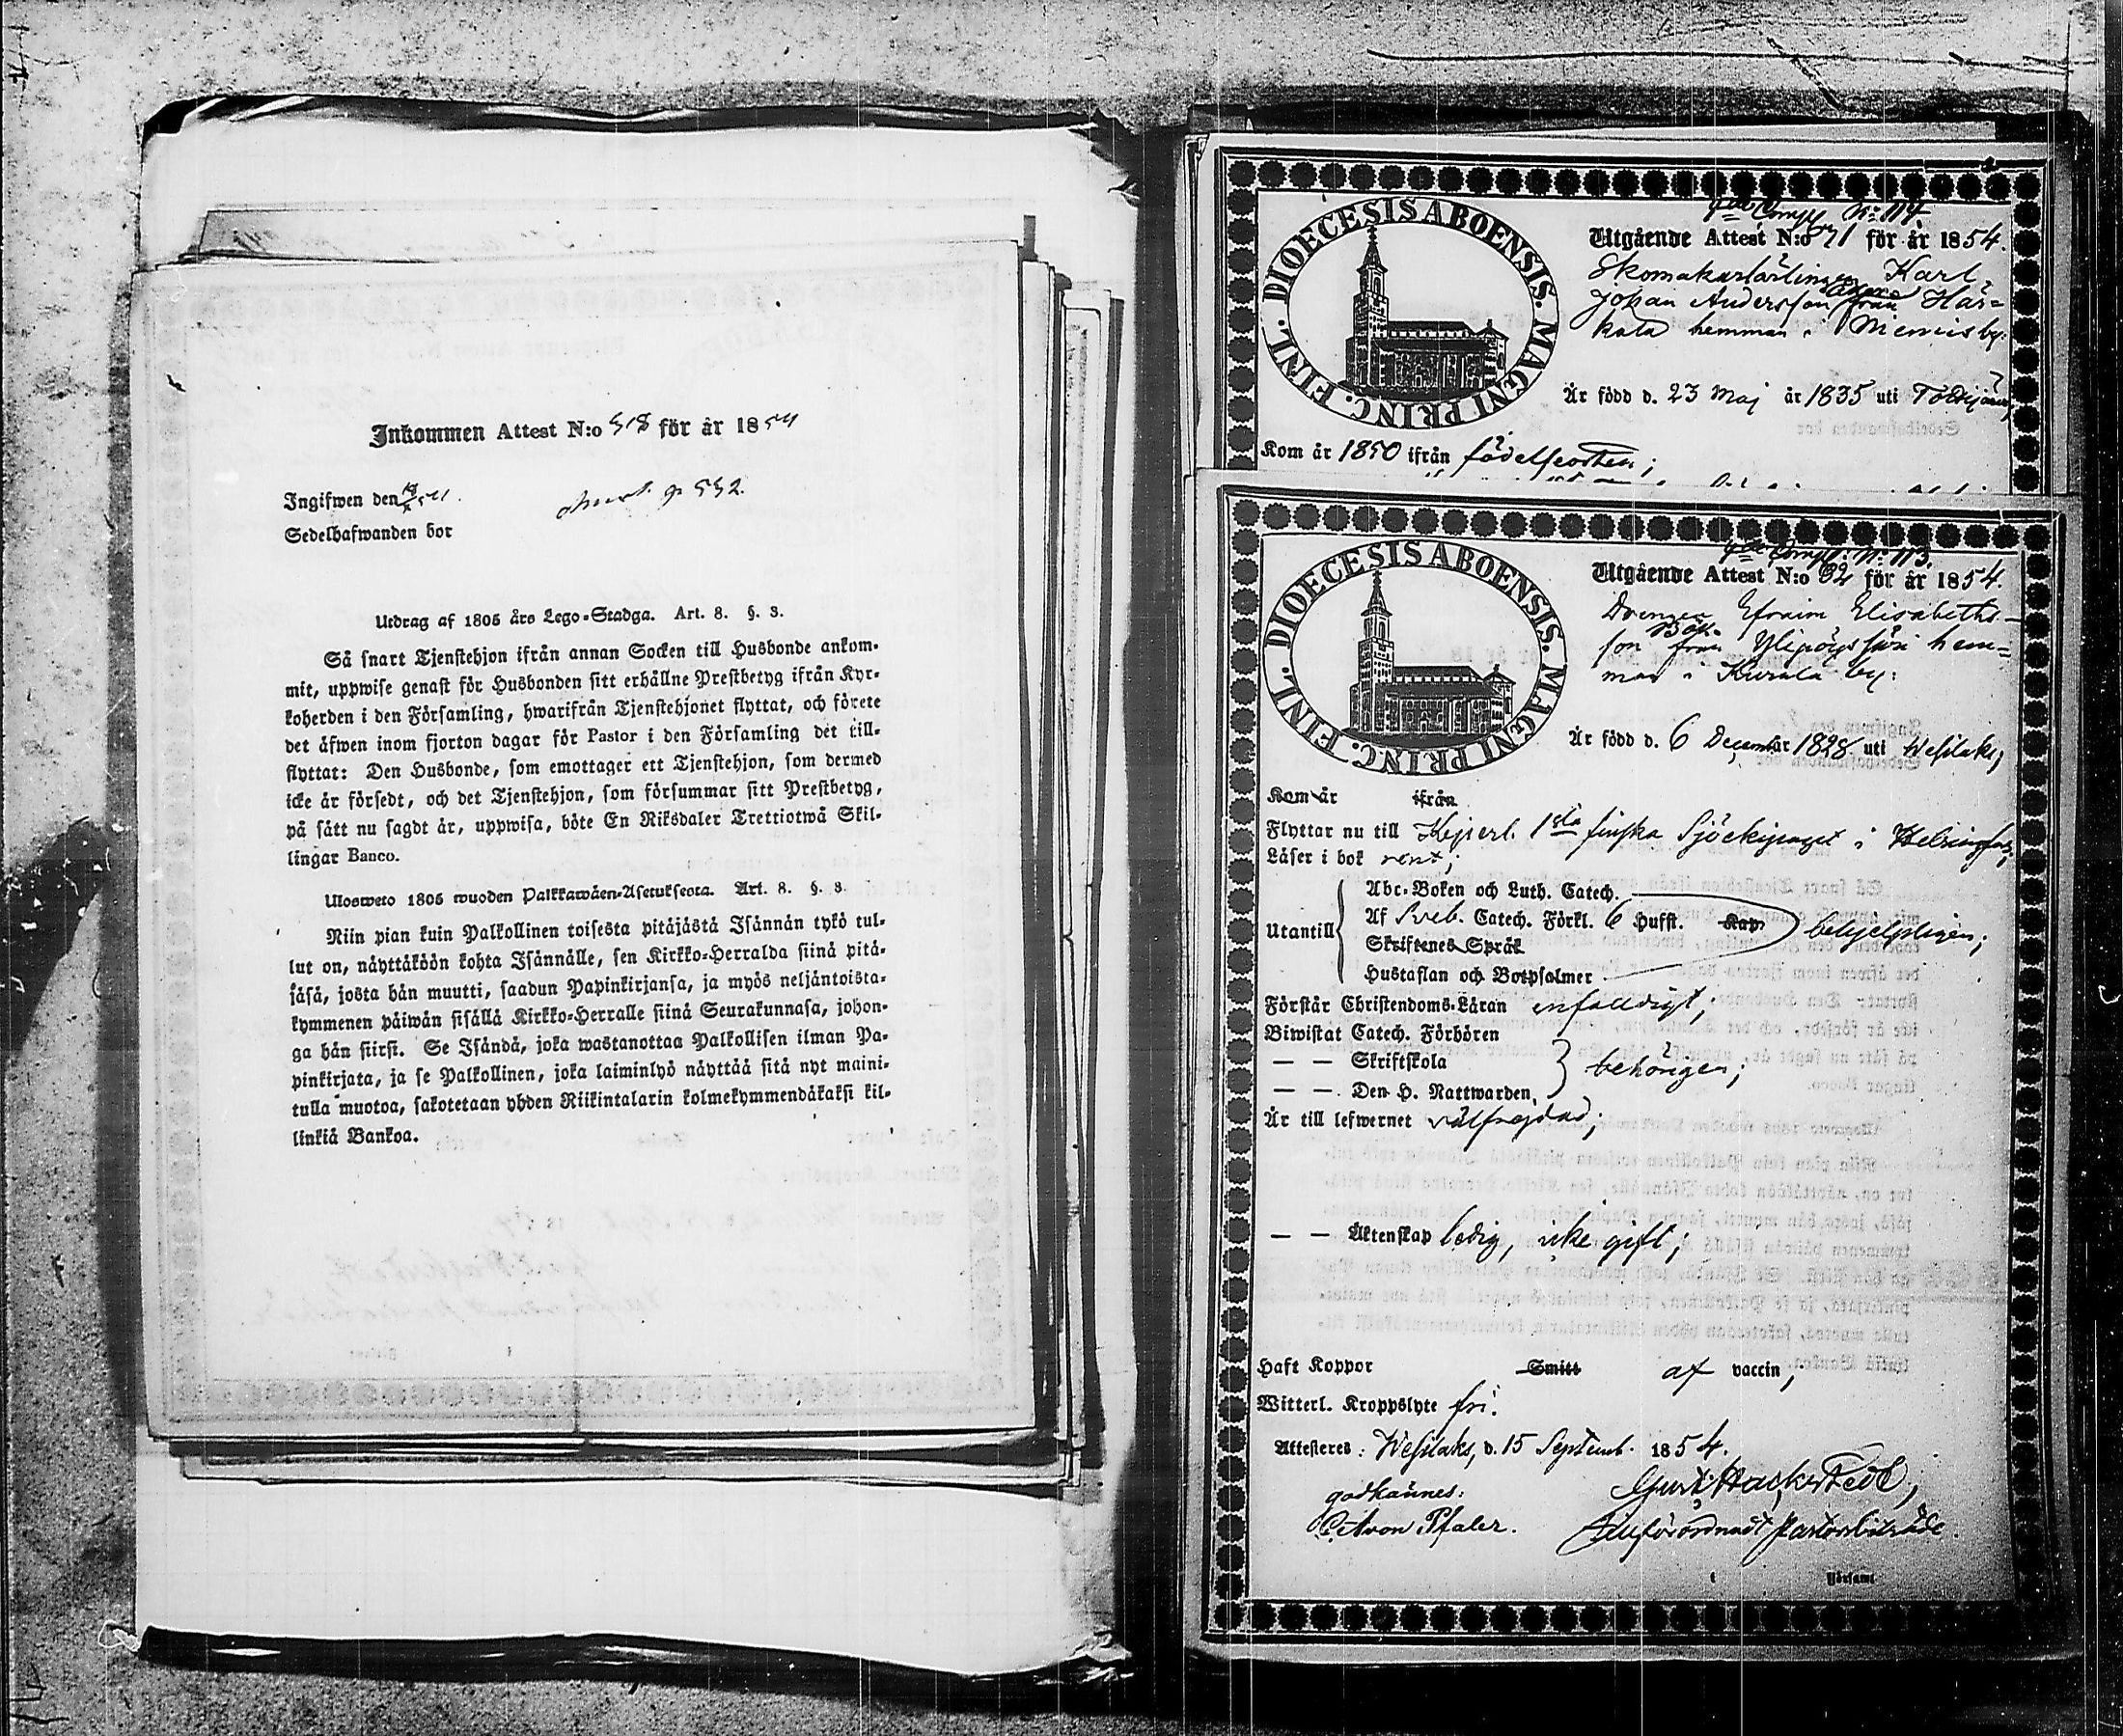 Inkommen Attest N:o 518 för år 1854
Ingifwen den
Sedelhafwanden bor
Utdrag af 1805 års Lego-Stadga. Art. 8. §. 3.
Så snart Tjenstehjon ifrån annan Socken till Husbonde ankom-
mit, uppwise genast för Husbonden sitt erhållne Prestbetyg ifrån Kyr-
koherden i den Församling, hwarifrån Tjenstehjonet flyttat, och förete
det äfwen inom fjorton dagar för Pastor i den Församling det till-
flyttat: Den Husbonde, som emottager ett Tjenstehjon, som dermed
icke är försedt, och det Tjenstehjon, som försummar sitt Prestbetyg,
på sätt nu sagdt är, uppwisa, böte En Riksdaler Trettiotwå Skil-
lingar Banco.
Ulosweto 1805 wuoden Palkkawäen-Asetuksesta. Art. 8. §. 3.
Niin pian kuin Palkollinen toisesta pitäjästä Isännän tykö tul-
lut on, näyttäköön kohta Isännälle, sen Kirkko-Herralda siinä pitä-
jäsä, josta hän muutti, saadun Papinkirjansa, ja myös neljäntoista-
kymmenen päiwän sisällä Kirkko-Herralle siinä Seurakunnasa, johon-
ga hän siirsi. Se Isändä, joka wastanottaa Palkollisen ilman Pa-
pinkirjata, ja se Palkollinen, joka laiminlyö näyttää sitä nyt maini-
tulla muotoa, sakotetaan yhden Riikintalarin kolmekymmendäkaksi kil-
linkiä Bankoa.
DIOECESIS ABOENSIS. MAGNI PRINC. FINL.
N:o 114.
Utgående Attest N:o 71 för år 1854.
Skomakarlärlingen Karl
Johan Andersson från Här-
kälä hemman i by.
Är född d. 23 Maj år 1835 uti
Kom år 1850 ifrån födelseorten;
DIOECESIS ABOENSIS. MAGNI PRINC. FINL.
N:o 113.
Utgående Attest N:o 82 för år 1854.
Drengen Efraim Elisabeths-
son Böök från hem-
man i Kurala by:
Är född d. 6 December år 1828 uti Wesilaks;
Kom år ifrån
Flyttar nu till Kejserl. 1sta finska Sjöekipaget i Helsingfors;
Läser i bok rent;
Utantill
Abc-Boken och Luth. Catech.
Af Sveb. Catech. Förkl. 6 Hufst. Kap.
Skriftenes Språk
Hustaflan och Botpsalmer
behjelpligen;
Förstår Christendoms-Läran enfaldigt;
Biwistat Catech. Förhören
— — Skriftskola
— — Den H. Nattwarden,
behörigen;
Är till lefwernet välfrejdad;
— — Äktenskap ledig, icke gift;
Haft Koppor Smitt af vaccin,
Witterl. Kroppslyte fri.
Attesteres: Wesilaks, d. 15 Septemb. 1854.
godkännes:
von Pfaler.
Gust. Hackstedt,
Församl.